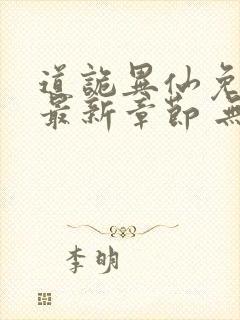 道詭異仙免
最新章節 無
李明